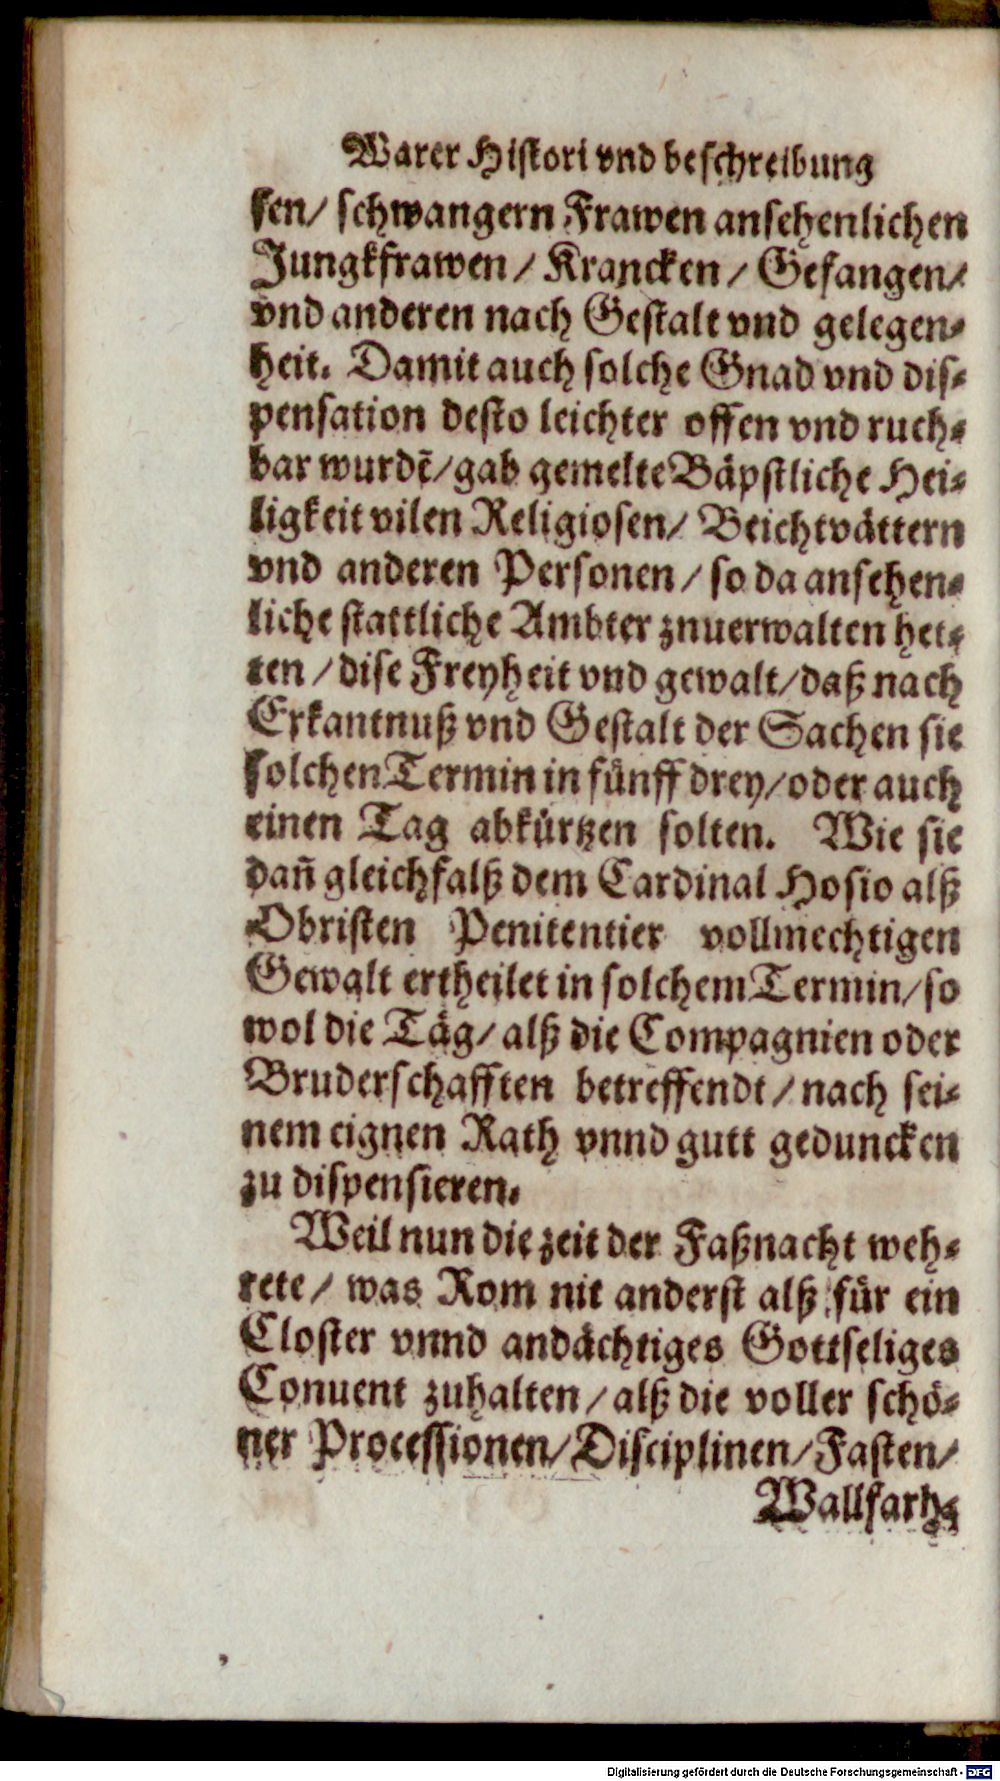 Warer Histori vnd beschreibung
sen/ schwangern Frawen ansehenlichen
Jungkfrawen / Krancken / Gefangen/
vnd anderen nach Gestalt vnd gelegen-
heit. Damit auch solche Gnad vnd dis-
pensation desto leichter offen vnd ruch-
bar wurdẽ/ gab gemelte Bäpstliche Hei-
ligkeit vilen Religiosen/ Beichtvättern
vnd anderen Personen / so da ansehen-
liche stattliche Ambter znuerwalten het-
ten / dise Freyheit vnd gewalt/ daß nach
Erkantnuß vnd Gestalt der Sachen sie
solchen Termin in fünff drey/ oder auch
einen Tag abkürtzen solten. Wie sie
dañ gleichfalß dem Cardinal Hosio alß
Obristen Penitentier vollmechtigen
Gewalt ertheilet in solchem Termin/ so
wol die Täg/ alß die Compagnien oder
Bruderschafften betreffendt / nach sei-
nem eignen Rath vnnd gutt geduncken
zu dispensieren.
Weil nun die zeit der Faßnacht weh-
rete / was Rom nit anderst alß für ein
Closter vnnd andächtiges Gottseliges
Conuent zuhalten / alß die voller schö-
ner Processionen/ Disciplinen/ Fasten/
Wallfarh-
Digitalisierung gefördert durch die Deutsche Forschungsgemeinschaft - DFG